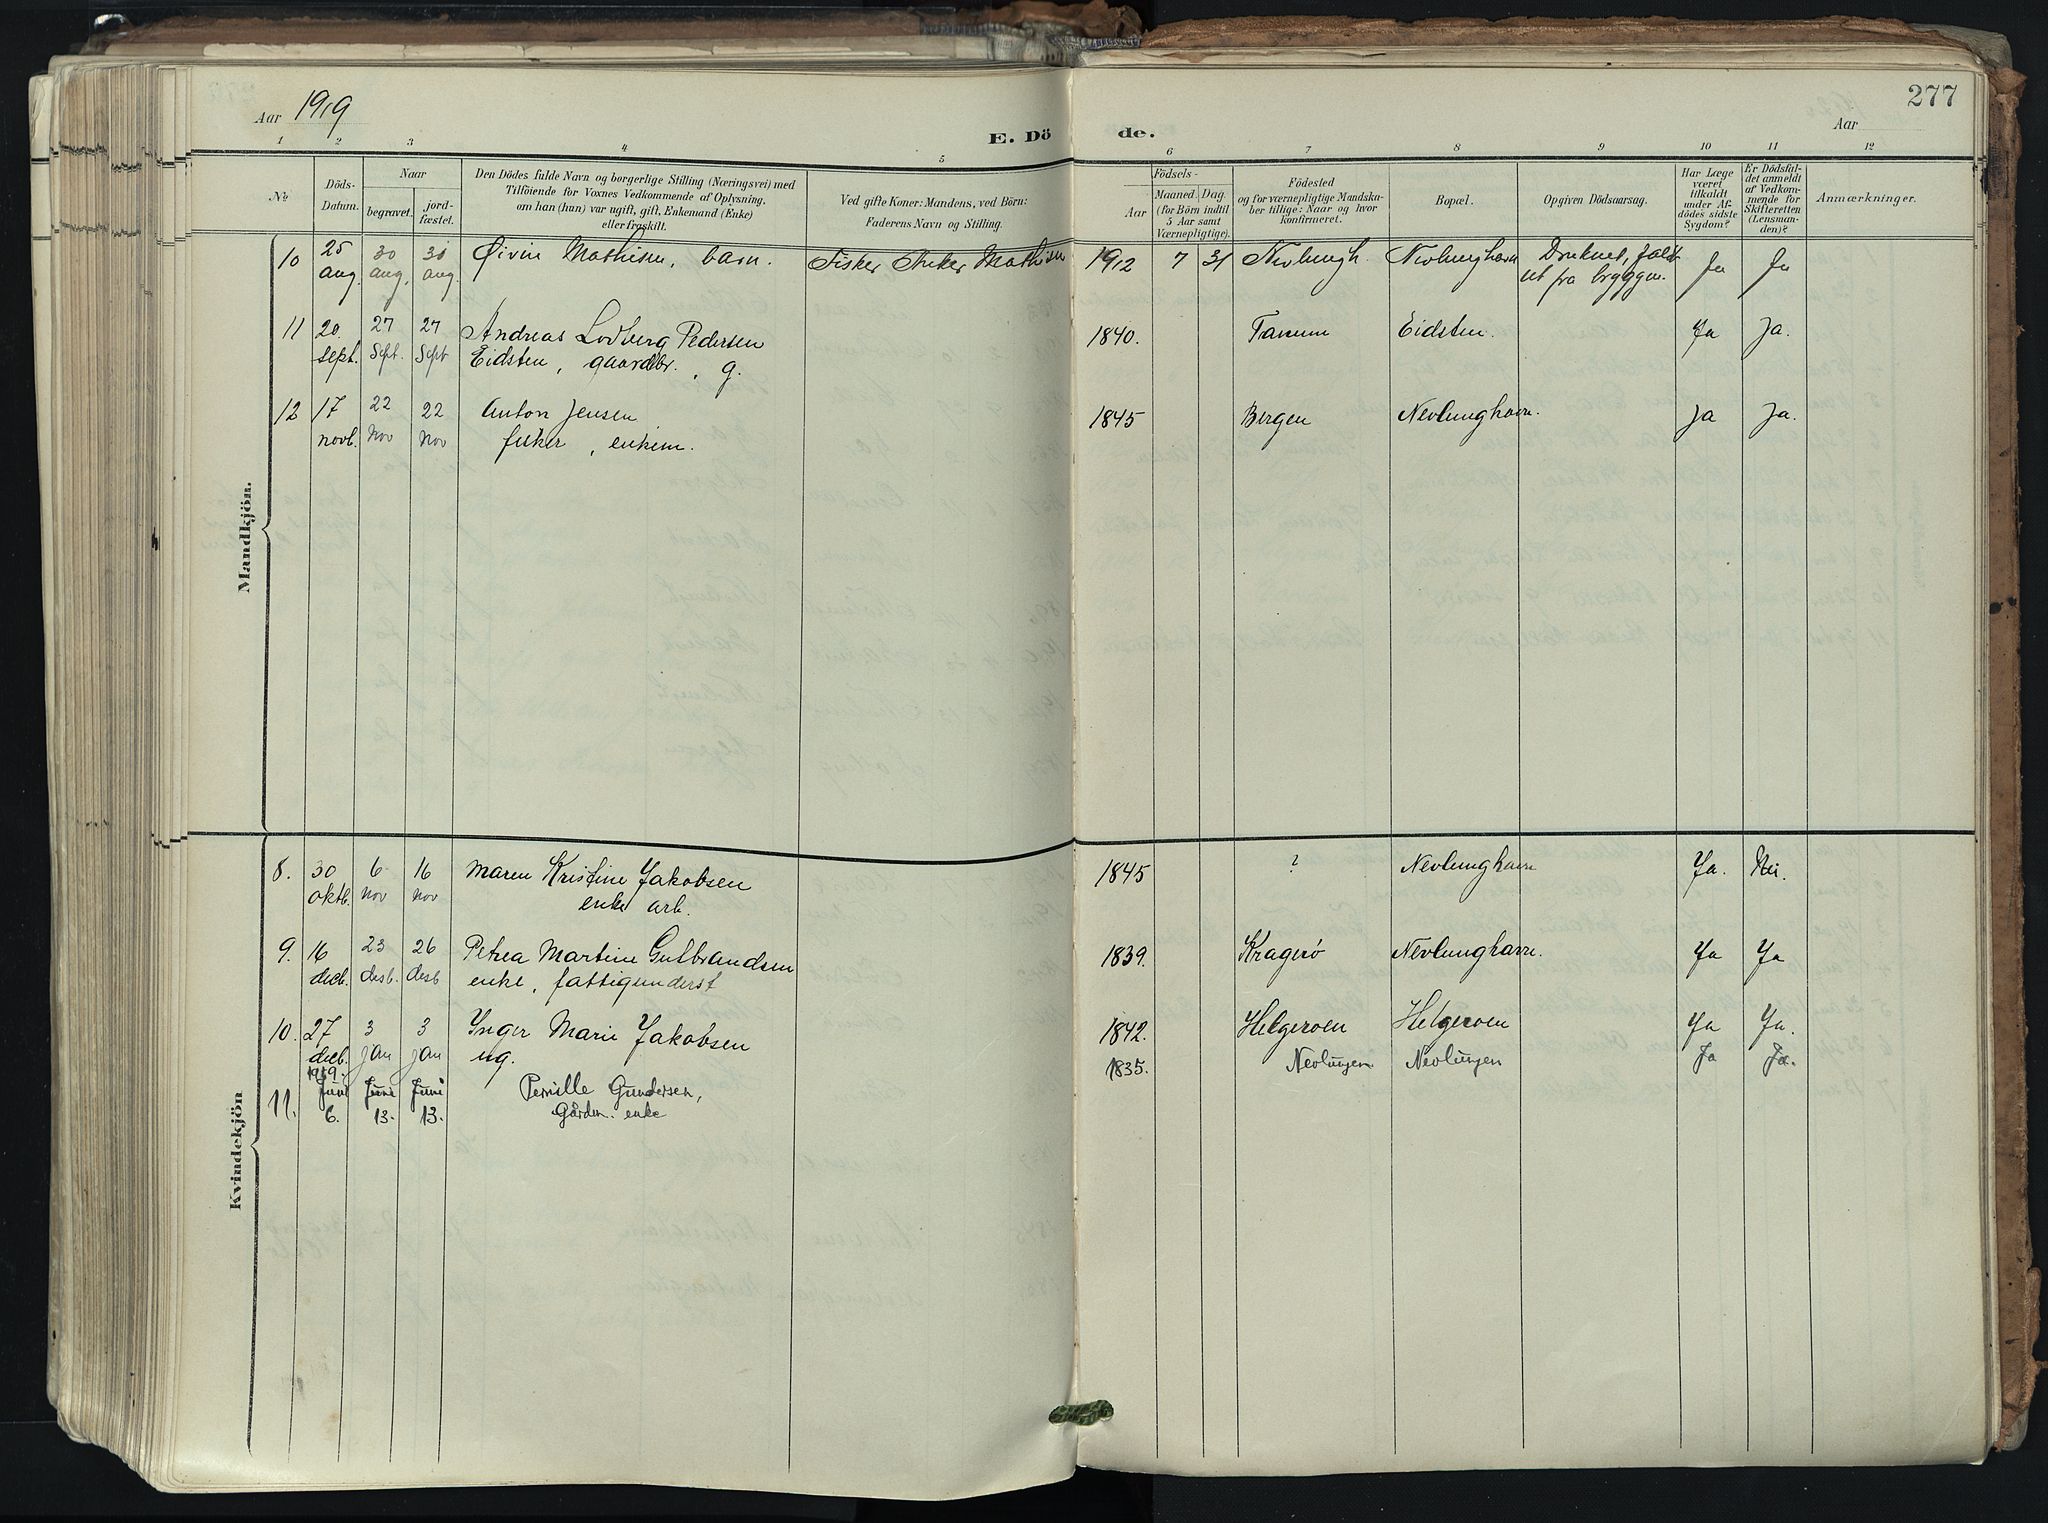 277
Aar 1919
E. Dö de.
Aar
1 2 3 4 5 6 7 8 9 10 11 12
No
Döds-
Datum.
Naar
begravet.
jord-
fæstet.
Den Dödes fulde Navn og borgerlige Stilling (Næringsvei) med
Tilföiende for Voxnes Vedkommende af Oplysning,
om han (hun) var ugift, gift, Enkemand (Enke)
eller fraskilt.
Ved gifte Koner: Mandens, ved Börn:
Faderens Navn og Stilling.
Födsels-
Aar
Maaned. Dag.
(for Börn indtil
5 Aar samt
Værnepligtige).
Födested
og for værnepligtige Mandska-
ber tillige: Naar og hvor
konfirmeret.
Bopæl.
Opgiven Dödsaarsag.
Har Læge
været
tilkaldt
under Af-
dödes sidste
Sygdom?
Er Dödsfal-
det anmeldt
af Vedkom-
mende for
Skifteretten
(Lensman-
den)?
Anmærkninger.
Mandkjön.
10 25 30 30 Øivin Mathisen, barn. Fisker Anker Mathisen 1912 7 31 Nevlungh. Nevlunghavn Druknet, faldt Ja Ja
aug. aug. aug. ut fra bryggen.
11 20 27 27 Andreas Lodberg Pedersen 1840. Tanum Eidsten. Ja Ja.
sept. sept. sept Eidsten, gaardbr., g.
12 17 22 22 Anton Jensen 1845 Bergen Nevlunghavn. Ja Ja.
novb. nov nov fisker, enkem.
Kvindekjön
8. 30 6 16 Maren Kristine Jakobsen 1845 ? Nevlunghavn Ja. Nei.
oktb. nov nov enke arb.
9. 16 23 26 Petrea Martine Gulbrandsen 1839. Kragerø Nevlunghavn. Ja Ja
decb. desb. desb enke, fattigunderst
10. 27 3 3 Inger Marie Jakobsen 1842. Helgeroen Helgeroen Ja Ja.
decb. jan jan ug.
1919. 1835. Nevlungen Nevlungen Ja Ja.
11. Juni Juni Juni Pernille Gundersen,
6. 13. 13. Gårdm. enke